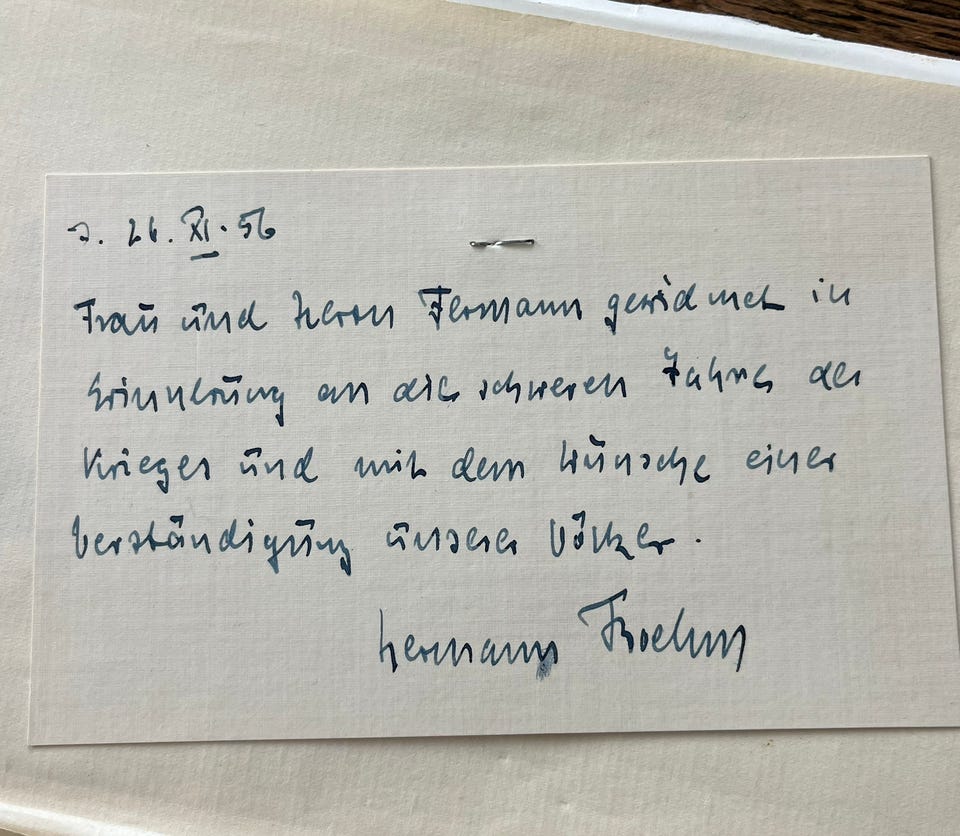 26. XI. 56
Frau und Herrn Fermann gewidmet in
Erinnerung an die schweren Jahre des
Krieges und mit dem Wunsche einer
Verständigung unserer Völker.
Hermann Boehm